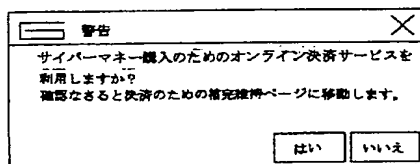 警告
サイバーマネー購入のためのオンライン決済サービスを
利用しますか?
確認なさると決済のための補完維持ページに移動します。
はい
いいえ